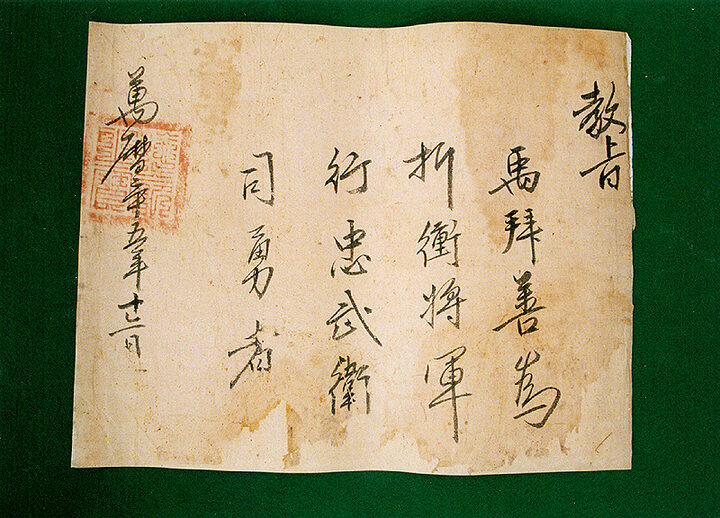 教旨
禹拜善為
折衝將軍
行忠武衛
司勇者
萬曆五年十二月